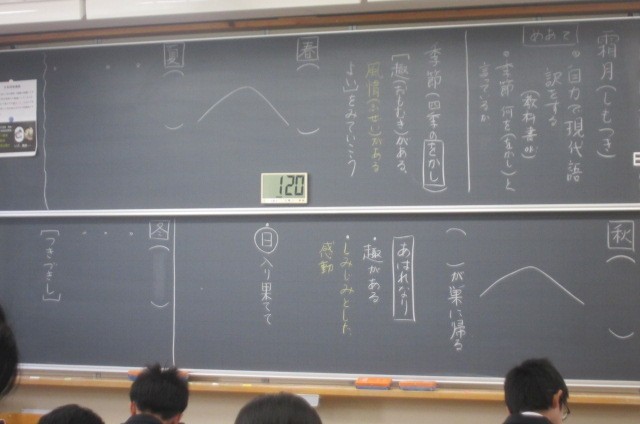 霜月(しもつき)
めあて
・自力で現代語
訳をする
(教科書ガ)
・季節、何を(をかし)と
言ってるか
季節(四季のをかし)
「趣(おもむき)がある、
風情(ふぜい)がある
よい」をみていこう
春(　)
夏(　)
120
秋(　)
(　)が巣に帰る
あはれなり
・趣がある
・しみじみとした
感動
・日入り果てて
冬(　)
[つきづきし]